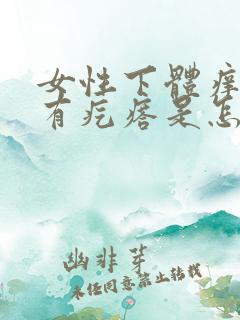 女性下體痒
有疙瘩是怎
幽非芽
未经同意禁止转载